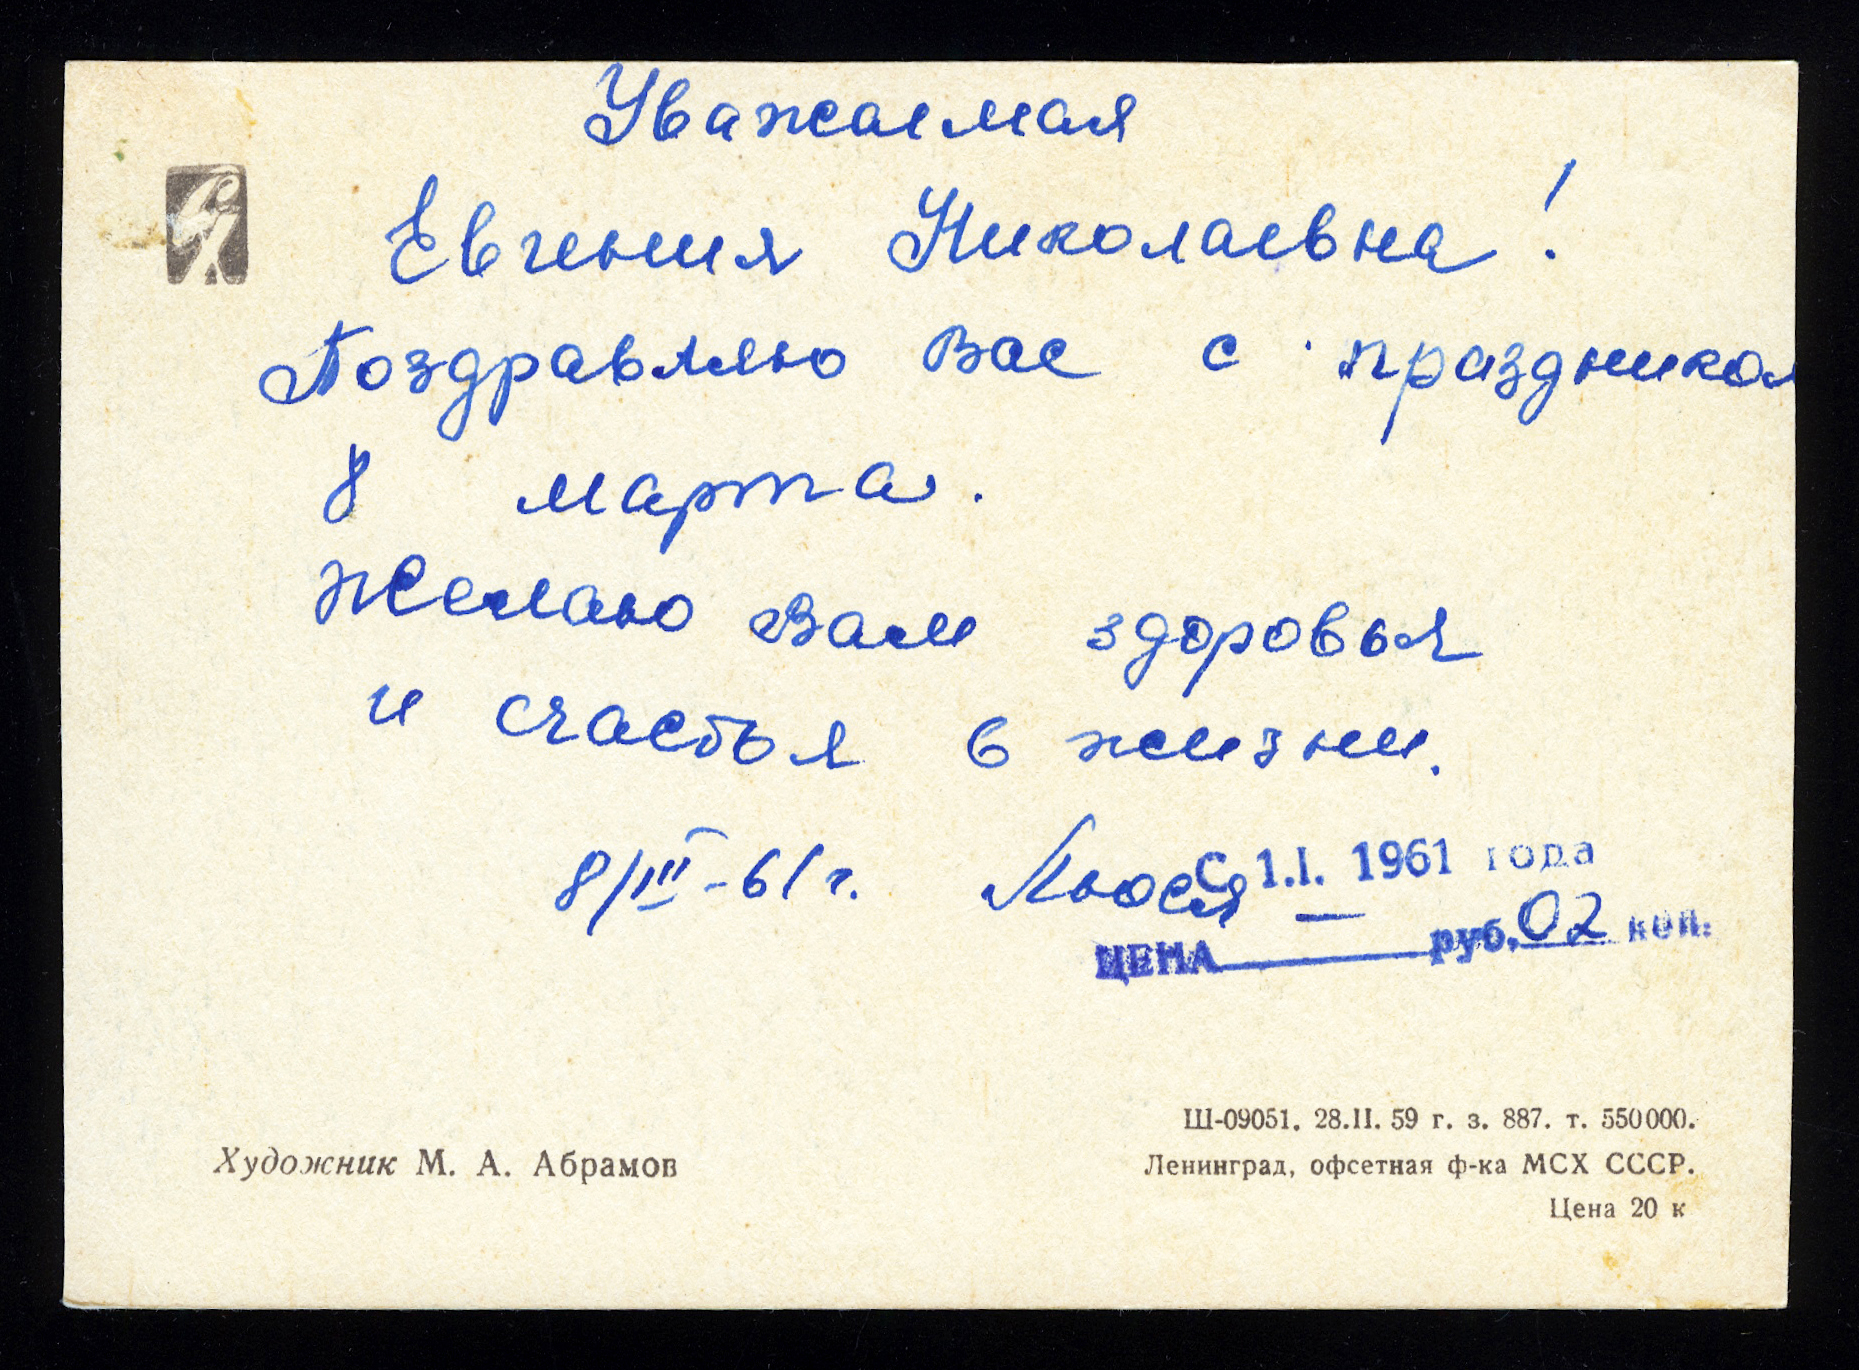 Уважаемая
Евгения Николаевна!
Поздравляю Вас с праздником
8 марта.
Желаю Вам здоровья
и счастья в жизни.
8/III-61г. Люся
С 1.I. 1961 года
ЦЕНА — руб. 02 коп.
Ш-09051. 28.II. 59 г. з. 887. т. 550000.
Художник М. А. Абрамов
Ленинград, офсетная ф-ка МСХ СССР.
Цена 20 к